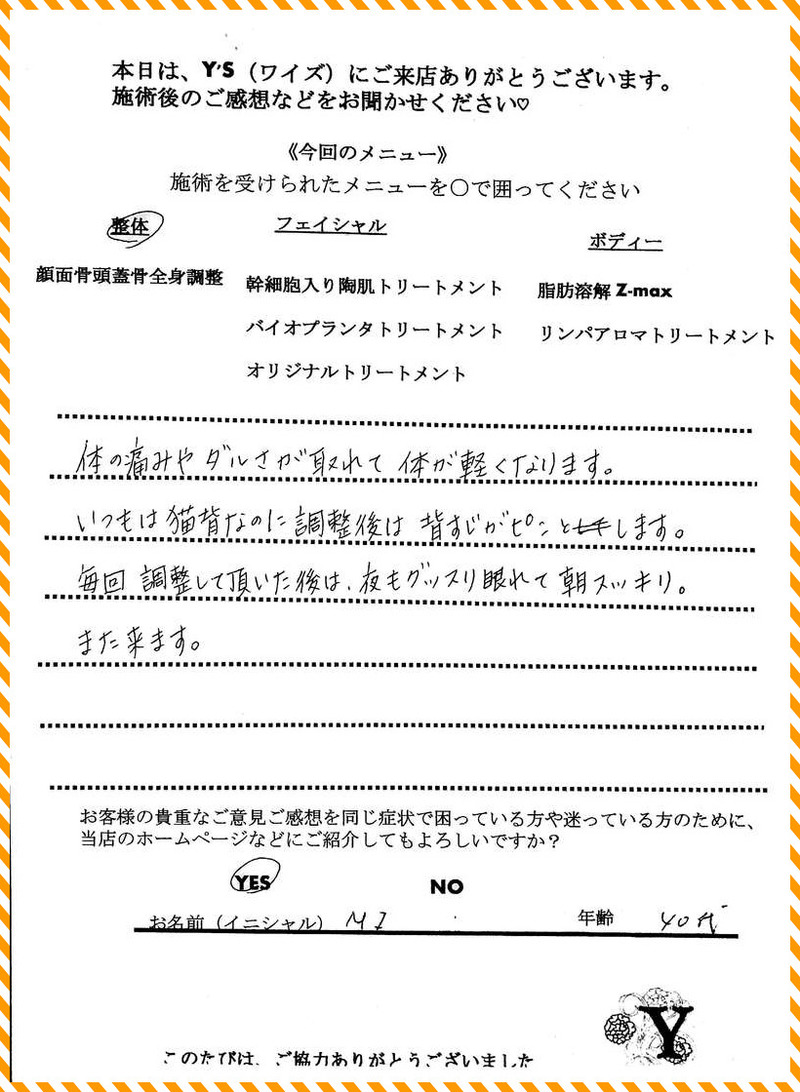 本日は、Y'S（ワイズ）にご来店ありがとうございます。
施術後のご感想などをお聞かせください♡
《今回のメニュー》
施術を受けられたメニューを〇で囲ってください
整体
フェイシャル
ボディー
顔面骨頭蓋骨全身調整
幹細胞入り陶肌トリートメント
脂肪溶解 Z-max
バイオプランタトリートメント
リンパアロマトリートメント
オリジナルトリートメント
体の痛みや ダルさが 取れて 体が 軽くなります。
いつもは猫背なのに 調整後は 背すじがピンとします。
毎回 調整して頂いた後は、夜もグッスリ眠れて 朝スッキリ。
また来ます。
お客様の貴重なご意見ご感想を同じ症状で困っている方や迷っている方のために、
当店のホームページなどにご紹介してもよろしいですか？
YES NO
お名前（イニシャル） M I 年齢 40代
Y
このたびは、ご協力ありがとうございました